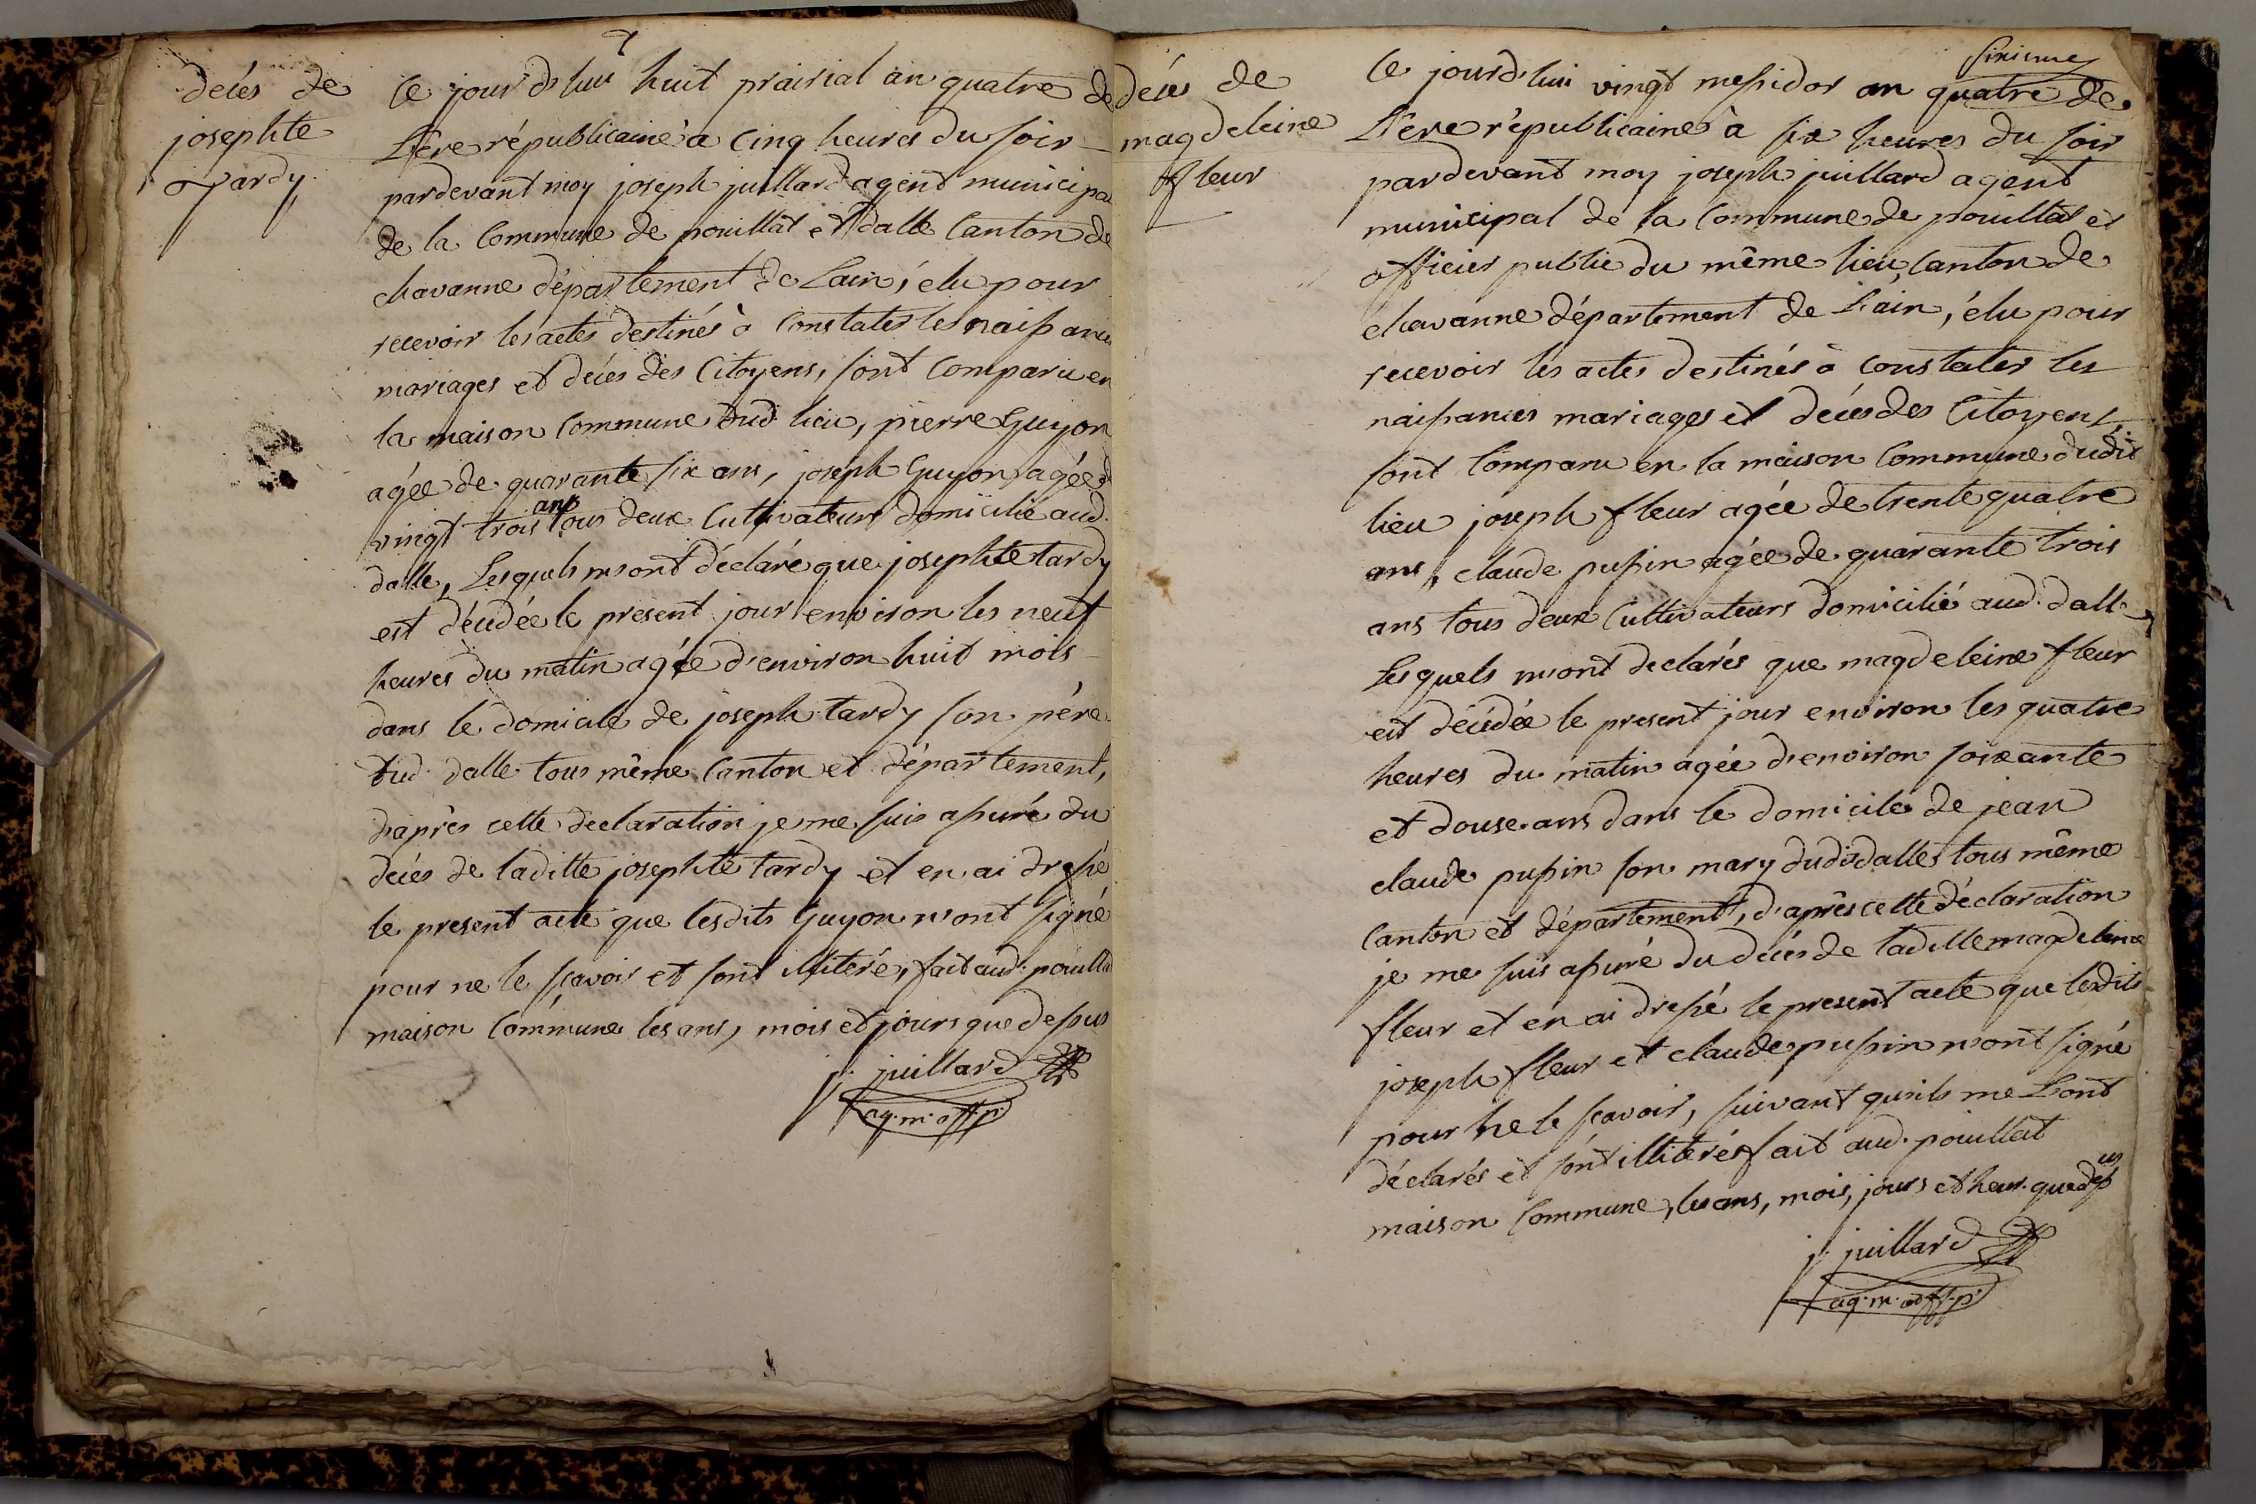 decés de
josephte
Tardy
Ce jour d'huï huit prairial an quatre de
L'ére républicaine à cinq heures du soir
pardevant moy joseph juillard agent municipa
de la Commune de pouillat et dalle Canton de
chavanne département de Lain, élu pour
recevoir les actes destinés à Constater les naissance
mariages et décés des Citoyens, sont Comparu en
la maison Commune dud lieu, pierre Guyon
agée de quarante six ans, joseph Guyon agée d
vingt trois ans tous deux Cultivateurs domicilié aud.
dalle, Lesquels m'ont déclaré que josephte tardy
est décédée le present jour environ les neuf
heures du matin agée d'environ huit mois
dans le domicile de joseph tardy son pére
dud. dalle tous même Canton et département,
d'après cette déclaration je me suis assuré du
decés de laditte josephte tardy et en ai dressé
le present acte que lesdits Guyon n'ont signé
pour ne le sçavoir et sont illiteré, fait aud. pouilla
maison Commune les ans, mois et jours que dessus
j. juillard
ag. m. off. p.
décés de
magdeleine
fleur
Ce jourd'hui vingt messidor an quatre de
L'ere républicaine à six heures du soir
pardevant moy joseph juillard agent
municipal de la Commune de pouillat et
officier public du même lieu, Canton de
chavanne département de L'ain, élu pour
recevoir les actes destinés à constater les
naissances mariages et décés des Citoyens,
sont Comparu en la maison Commune dudit
lieu joseph fleur agée de trente quatre
ans, claude pupin agée de quarante trois
ans tous deux Cultivateurs domicilié aud. dalle
Lesquels m'ont declarés que magdeleine fleur
est décédée le present jour environ les quatre
heures du matin agée d'environ soixante
et douse ans dans le domicile de jean
claude pupin son mary dudit dalles tous même
Canton et département, d'après cette déclaration
je me suis assuré du décés de laditte magdeleine
fleur et en ai dressé le present acte que lesdits
joseph fleur et claude pupin n'ont signé
pour ne le sçavoir, suivant qu'ils me L'ont
déclarés et sont illiterés fait aud. pouillat
maison Commune, les ans, mois, jours et heur. que dessus
j. juillard
ag. m. off. p.